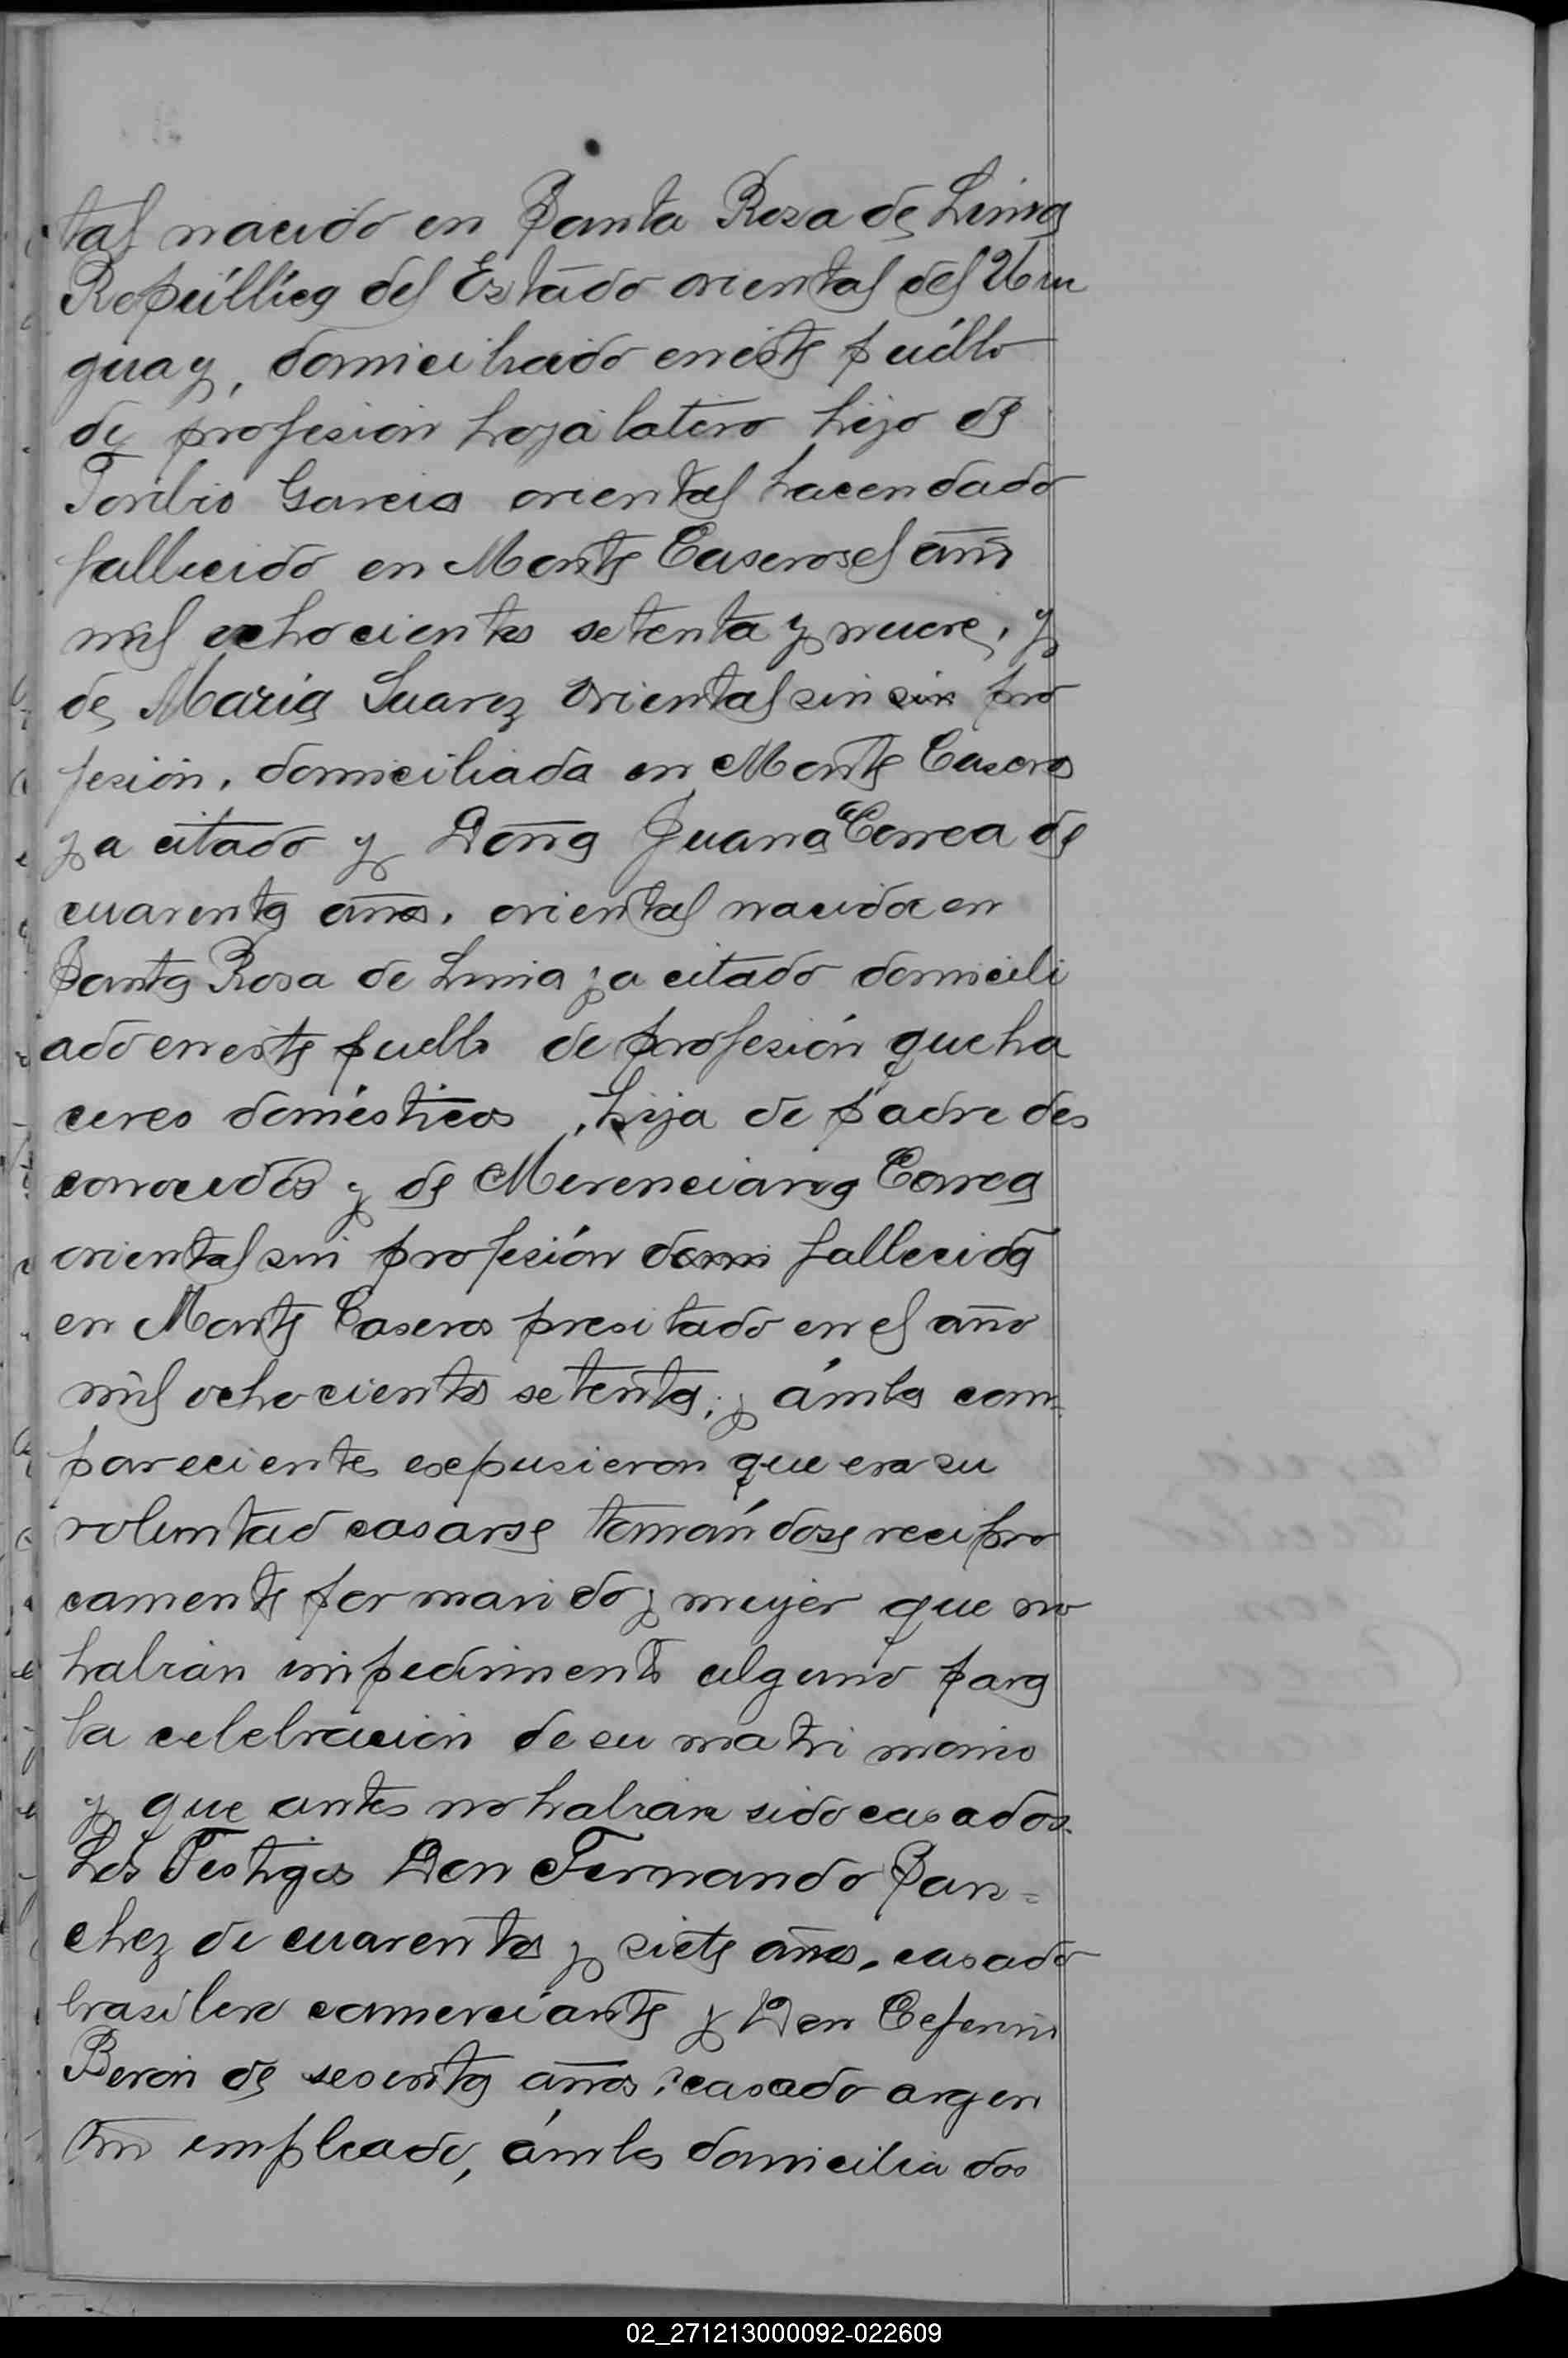 tal nacido en Santa Rosa de Lima
República del Estado oriental del Uru
guay, domiciliado en éste puéblo
de profesion hojalatero hijo de
Toribio Garcia oriental hacendado
fallecido en Monte Caseros el año
mil ochocientos setenta y nueve, y
de Maria Suarez oriental sin sin pro
fesión, domiciliada en Monte Caseros
ya citado y Doña Juana Correa de
cuarenta años, oriental nacida en
Santa Rosa de Lima ya citado domicili
ado en este pueblo de profesión queha
ceres domésticos, hija de padre des
conocidos y de Merenciana Correa
oriental sin profesión domi fallecida
en Monte Caseros precitado en el año
mil ochocientos setenta; y ámbos com-
parecientes expusieron que era su
voluntad casarse tomándose recipro
camente por marido y mujer que no
habian impedimento alguno para
la celebración de su matrimonio
y que antes no habian sido casados.
Los Testigos Don Fernando San=
chez de cuarenta y siete años, casado
brasilero comerciante y Don Ceferino
Beron de sesenta años, casado argen
tino empleado, ámbos domiciliados
02_271213000092-022609